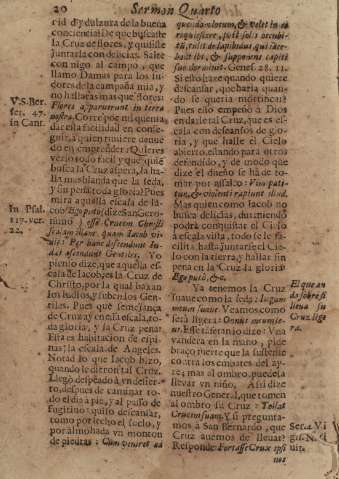 20 Sermon Quarto
rid d y dulzura de la buena
conciencia! De que buscaste
la Cruz de flores, y quisiste
juntarla con delicias. Salte
con migo al campo, que
llamo Damas para los
flores de la campaña mia, y
no hallarás mas que flores:
Flores apparuerunt in terra
nostra. Corre por mi quenta
dar esta facilidad en conse-
guir, à quien tuviere denue-
do en emprender. Quieres
verlo todo facil y que quiē
busca la Cruz aspera, la ha-
lla mas blanda que la seda,
y sin pena toda gloria? Pues
mira aquella escala de Ia-
cob. Ego puto, dize San Gero-
nimo,
Scalam illam, quam Iacob vi-
dit: Per hanc descendunt Iu-
dæi ascendunt Gentes. Yo
pienso, dize, que aquella es-
cala de Iacob, es la Cruz de
Christo, por la qual baxan
los Iudios, y suben los Gen-
tiles. Pues que semejança
de Cruz ay en essa escala, to-
da gloria, y la Cruz pena?
Esta es habitacion de espi-
nas; la escala de Angeles.
Notad lo que Iacob hizo,
quando le dieron tal Cruz.
Llegò despeado à vn desier-
to, despues de caminar to-
do el dia à pie, y al passo de
fugitivo: quiso descansar,
como por lecho el suelo, y
por almohada vn monton
de piedras: Cùm venisset ad
V. S. Ber-
ser. 47.
in Cant.
In Psal.
117. ver.
22.
quendam locum, & vellet in eo
requiescere, post solis occubi-
tū, tulit de lapidibus, qui iace-
bāt ibi, & supponens capiti
suo dormivit. Genes. 28. 11.
Si esto haze quando quiere
descansar, que haria quan-
do se queria mortificar?
Pues esso empeñò à Dios
en darle tal Cruz, que es es-
cala con descansos de glo-
ria, y que halle el Cielo
abierto, estando para otros
defendido, y de modo que
dize el dueño se ha de to-
mar por assalto: Vim pati-
tur, & violenti rapiunt illud.
Mas quien como Iacob no
busca delicias, durmiendo
podrà conquistar el Cielo
à escala vista, todo se le fa-
cilita hasta juntarse el Cie-
lo con la tierra, y hallar sin
pena en la Cruz la gloria:
Ego puto, &c.
Ya tenemos la Cruz
suave como la seda: Iugum
meum suave. Veamos como
serà ligera: Onus meum le-
ve. Esse tafetan lo dize: Vna
vandera en la mano, pide
braço fuerte que la sustente
contra los embates del ay-
re; mas al ombro, puede la
llevar vn niño. Assi dize
nuestro General, que tomen
al ombro su Cruz: Tollat
Crucem suam. Y si pregunta-
mos à San Bernardo, que
Cruz avemos de llevar?
Responde: Fortasse Crux ipsi
nos
El que an-
da sobre si
lleva su
Cruz lige-
ra.
Ser. 2. Vi-
gil. N.